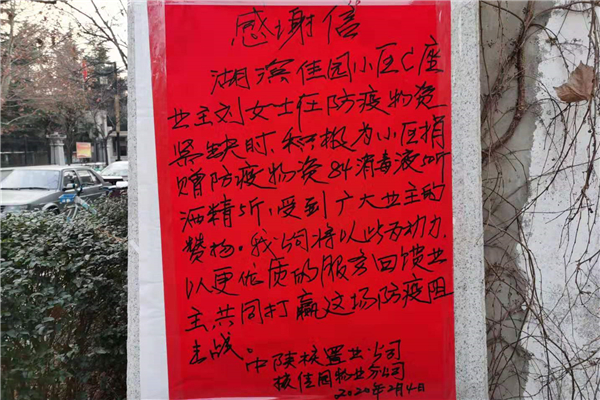 感谢信
湖滨佳园小区C座
业主刘女士在防疫物资
紧缺时、积极为小区捐
赠防疫物资84消毒液50斤
酒精5斤、受到广大业主的
赞扬。我们将以此为动力、
以更优质的服务回馈业
主共同打赢这场防疫阻
击战。
中陕核置业公司
核佳园物业分公司
2020年2月4日